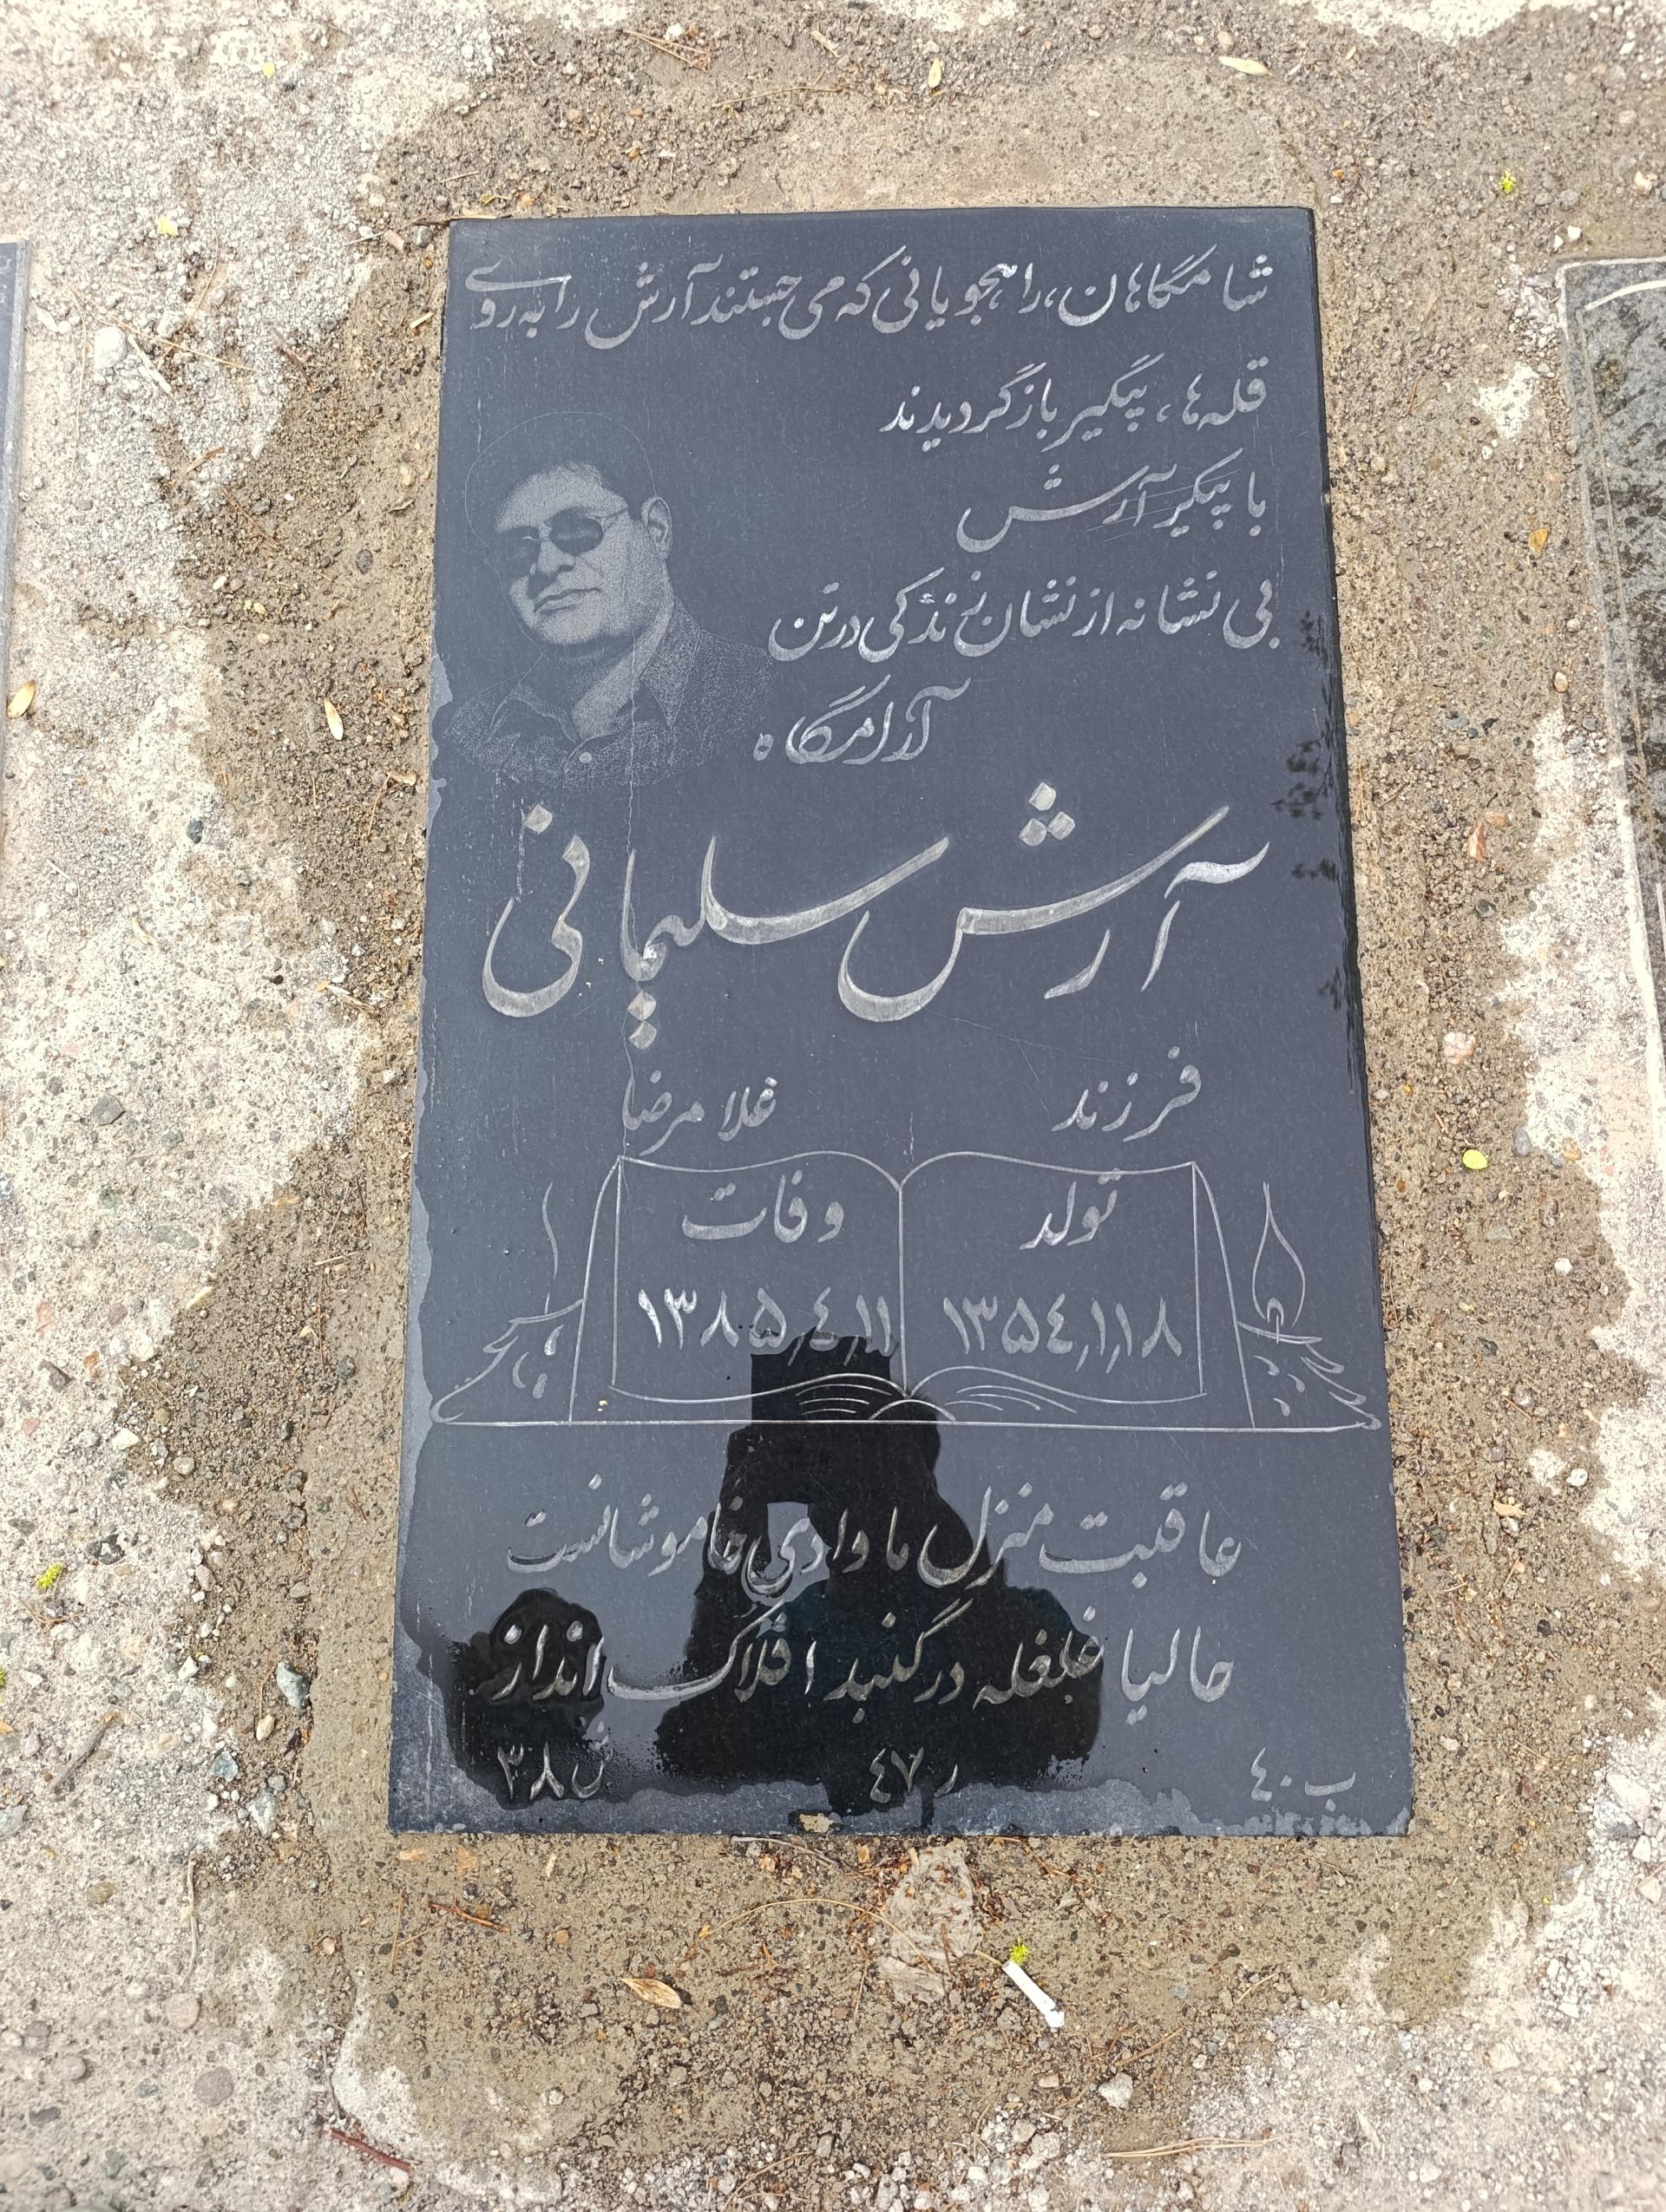 شامگاهان، راهجویانی که می جستند آرش را به روی
قله ها، پیگیر بازگردیدند
با پیکر آرش
بی نشانه از نشان زندگی در تن
آرامگاه
آرش سلیمانی
فرزند غلامرضا
تولد وفات
۱۳۵٤,۱,۱۸ ۱۳۸۵,٤,۱۱
عاقبت منزل ما وادی خاموشانست
حالیا غلغله در گنبد افلاک انداز
ب ٤۰ ر ٤۷ ش ۳۸